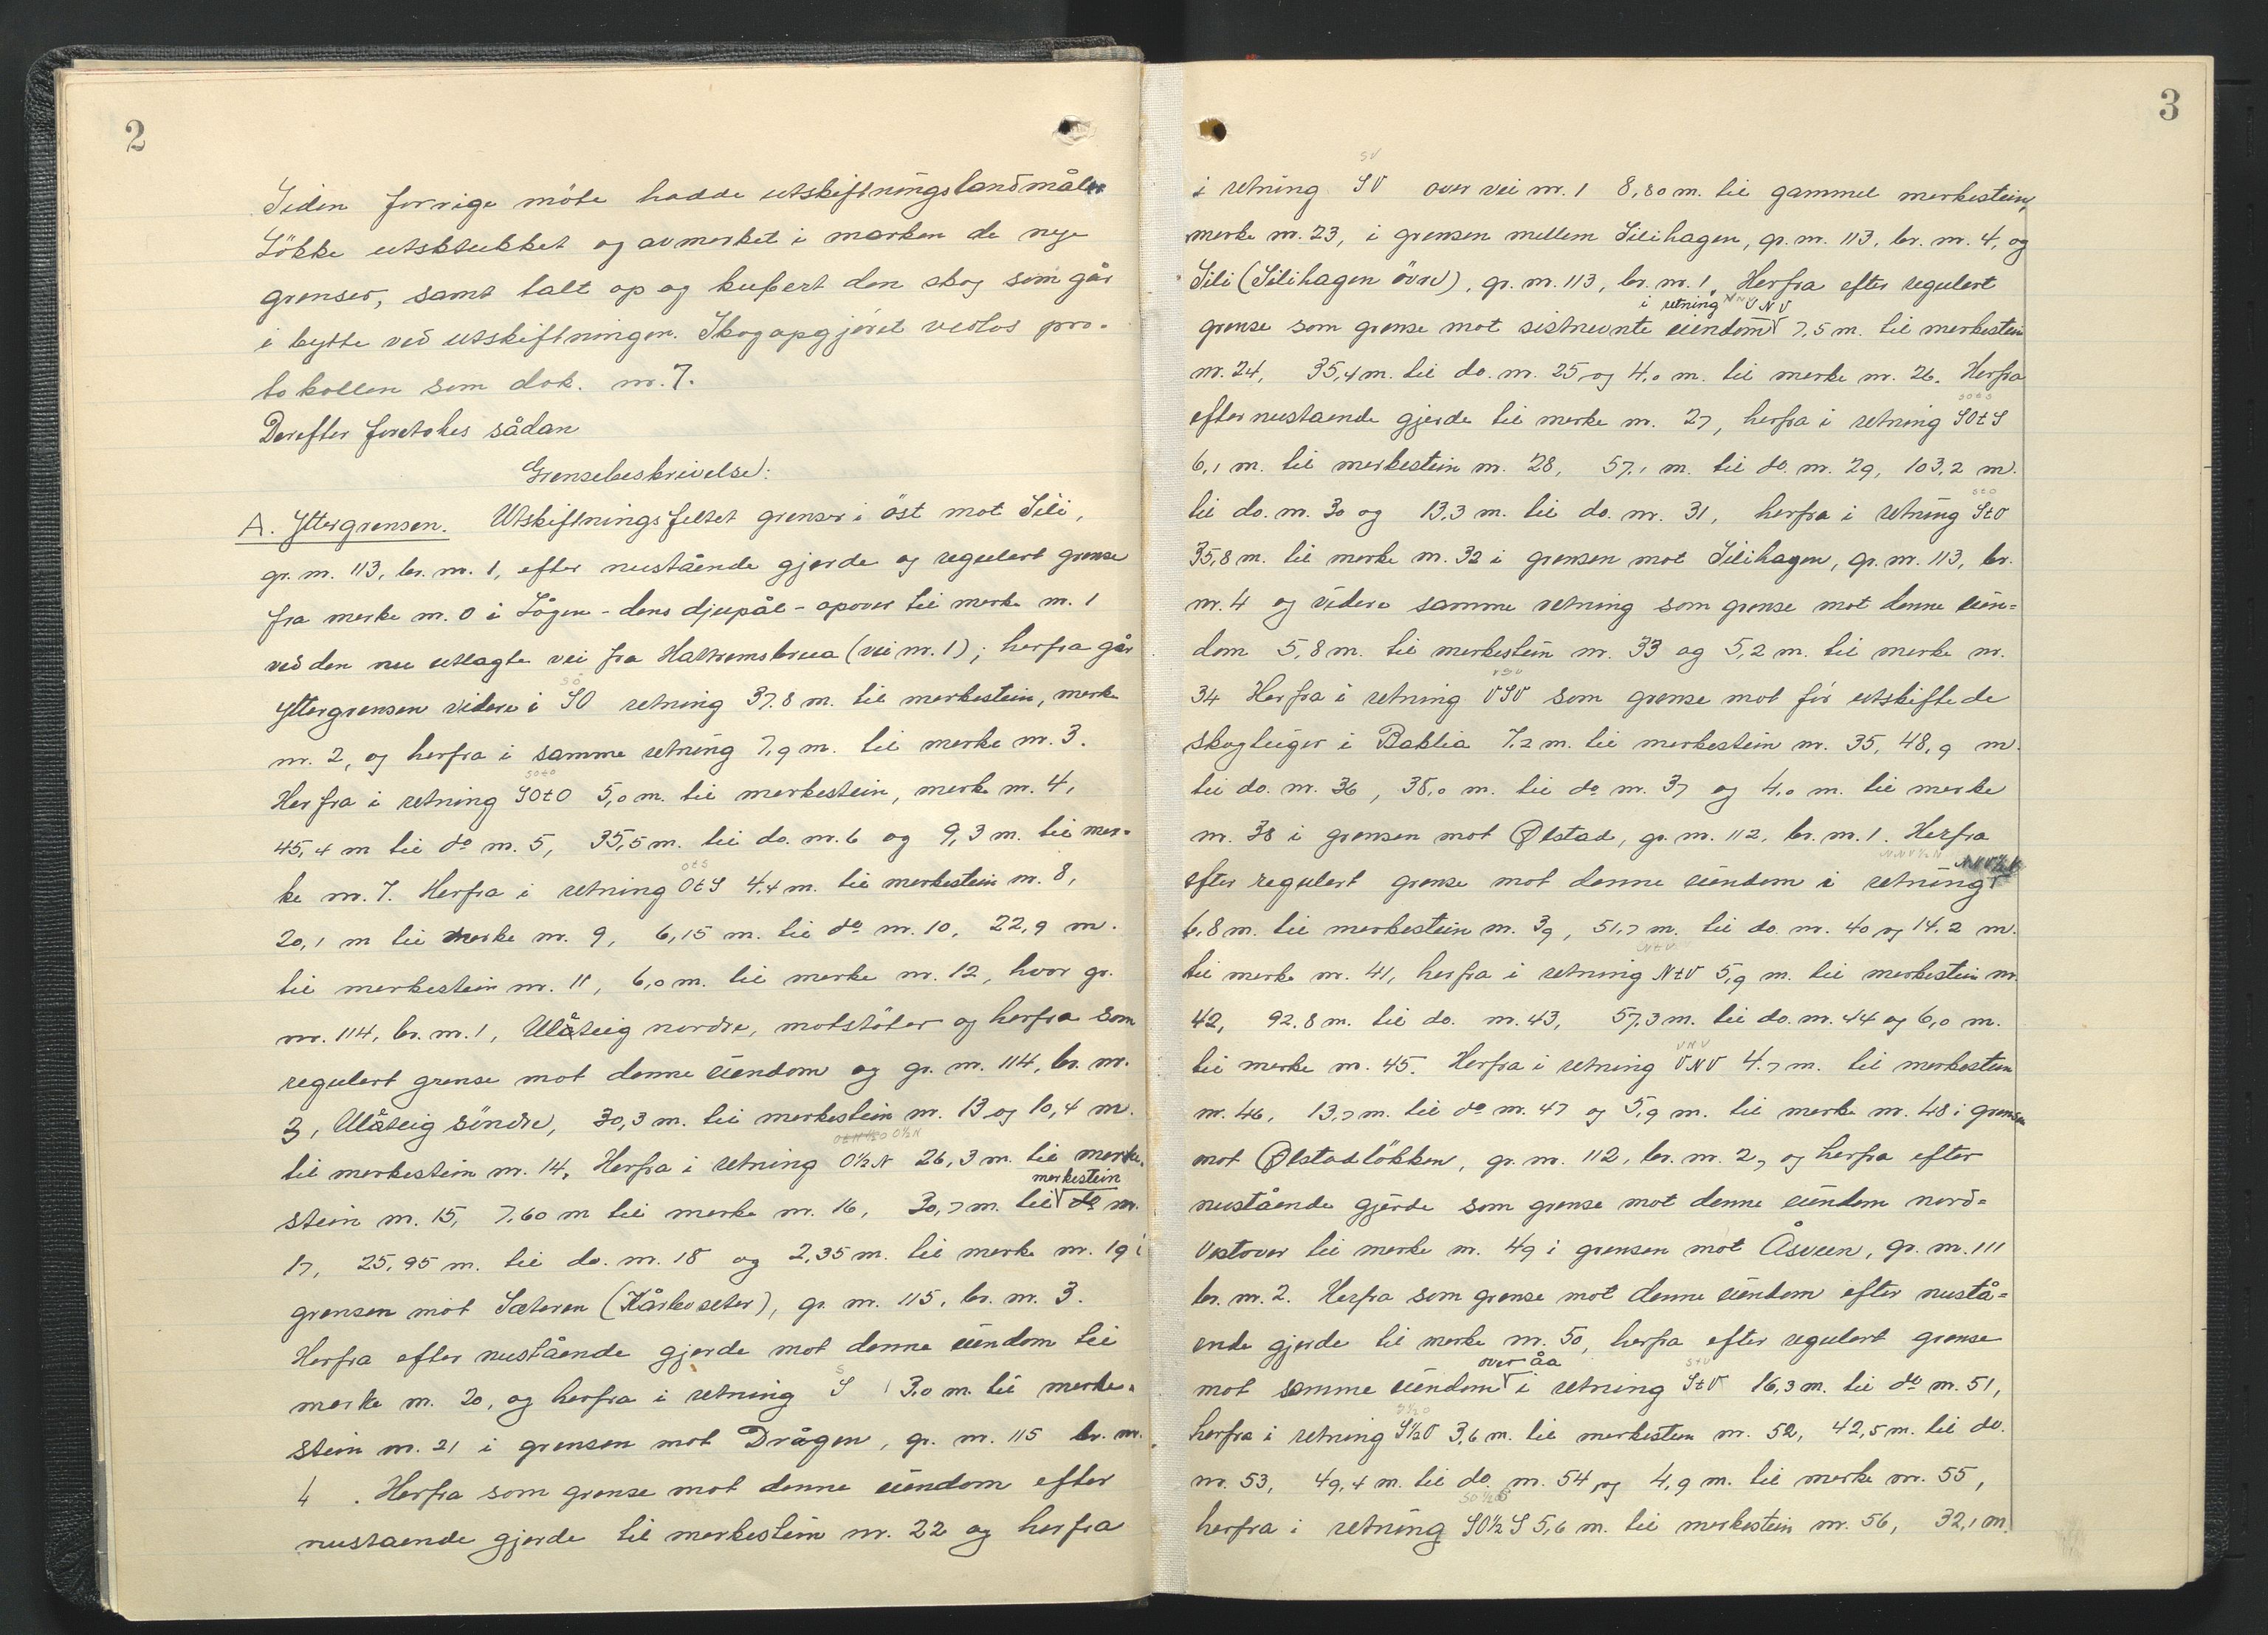 2
Siden forrige möte hadde utskiftningslandmåler
Lökke utstukket og avmerket i marken de nye
grenser, samt talt op og kubert den skog som går
i bytte ved utskiftningen. Skogopgjöret vedlos pro-
tokollen som dok. nr. 7.
Derefter foretokes sådan
Grensebeskrivelse:
A. Yttergrensen. Utskiftningsfeltet grenser i öst mot Sili,
gr. nr. 113, br. nr. 1, efter nustående gjerde og regulert grense
fra merke nr. 0 i Lågen - dens djupål - opover til merke nr. 1
ved den nu utlagte vei fra Hattremsbrua (vei nr. 1); herfra går
SO
yttergrensen videre i SO retning 37.8 m. til merkestein, merke
nr. 2, og herfra i samme retning 7,9 m. til merke nr. 3.
SOtO
Herfra i retning SOtO 5,0 m. til merkestein, merke nr. 4,
45,4 m til do nr. 5, 35,5 m. til do. nr. 6 og 9,3 m. til mer-
OtS
ke nr. 7. Herfra i retning OtS 4,4 m. til merkestein nr. 8,
20,1 m til merke nr. 9, 6,15 m. til do nr. 10, 22,9 m.
til merkestein nr. 11, 6,0 m. til merke nr. 12, hvor gr.
nr. 114, br. nr. 1, Ulåteig nordre, motstöter og herfra som
regulert grense mot denne eiendom og gr. nr. 114, br. nr.
3, Ulåteig söndre, 30,3 m. til merkestein nr. 13 og 10,4 m.
O½N
til merkestein nr. 14. Herfra i retning O½N 26,3 m. til merke-
merkestein
stein nr. 15, 7.60 m til merke nr. 16, 30,7 m. til do nr.
17, 25,95 m. til do. nr. 18 og 2,35 m. til merke nr. 19 i
grensen mot Sæteren (Kårboseter), gr. nr. 115, br. nr. 3.
Herfra efter nustående gjerde mot denne eiendom til
S
merke nr. 20, og herfra i retning S 3.0 m. til merke-
stein nr. 21 i grensen mot Drågen, gr. nr. 115 br. nr.
4. Herfra som grense mot denne eiendom efter
nustaende gjerde til merkestein nr. 22 og herfra
3
SV
i retning SV over vei nr. 1 8,80 m. til gammel merkestein,
merke nr. 23, i grensen mellem Silihagen, gr. nr. 113, br. nr. 4, og
Sili (Silihagen övre), gr. nr. 113, br. nr. 1. Herfra efter regulert
i retning VNV
grense som grense mot sistnevnte eiendom 7,5 m. til merkestein
nr. 24, 35,4 m. til do. nr. 25, og 4,0 m. til merke nr. 26. Herfra
SOtS
efter nustaende gjerde til merke nr. 27, herfra i retning SOtS
6,1 m. til merkestein nr. 28, 57,1 m. til do. nr. 29, 103,2 m.
StO
til do. nr. 30 og 13,3 m. til do. nr. 31, herfra i retning StO
35,8 m. til merke nr. 32 i grensen mot Silihagen, gr. nr. 113, br.
nr. 4 og videre samme retning som grense mot denne eien-
dom 5,8 m. til merkestein nr. 33 og 5,2 m. til merke nr.
VSV
34 Herfra i retning VSV som grense mot för utskiftede
skogteiger i Baklia 7.2 m. til merkestein nr. 35, 48,9 m.
til do. nr. 36, 38,0 m. til do nr. 37 og 4,0 m. til merke
nr. 38 i grensen mot Ølstad, gr. nr. 112, br. nr. 1. Herfra
NNV½N
efter regulert grense mot denne eiendom i retning
6,8 m. til merkestein nr. 39, 51,7 m. til do. nr. 40 og 14.2 m.
NtV
til merke nr. 41, herfra i retning NtV 5,9 m. til merkestein nr.
42, 92.8 m. til do. nr. 43, 57,3 m. til do. nr. 44 og 6,0 m.
VNV
til merke nr. 45. Herfra i retning VNV 4.7 m. til merkestein
nr. 46, 13,7 m. til do nr. 47 og 5,9 m. til merke nr. 48 i grensen
mot Ølstadlökken, gr. nr. 112, br. nr. 2, og herfra efter
nustående gjerde som grense mot denne eiendom nord-
vestover til merke nr. 49 i grensen mot Åsveen, gr. nr. 111
br. nr. 2. Herfra som grense mot denne eiendom efter nustå-
ende gjerde til merke nr. 50, herfra efter regulert grense
over åa StV
mot samme eiendom i retning StV 16,3 m. til do nr. 51,
S½O
herfra i retning S½O 3,6 m. til merkestein nr. 52, 42,5 m. til do.
nr. 53, 49,4 m. til do. nr. 54 og 4,9 m. til merke nr. 55,
SO½S
herfra i retning SO½S 5,6 m. til merkestein nr. 56, 32,1 m.